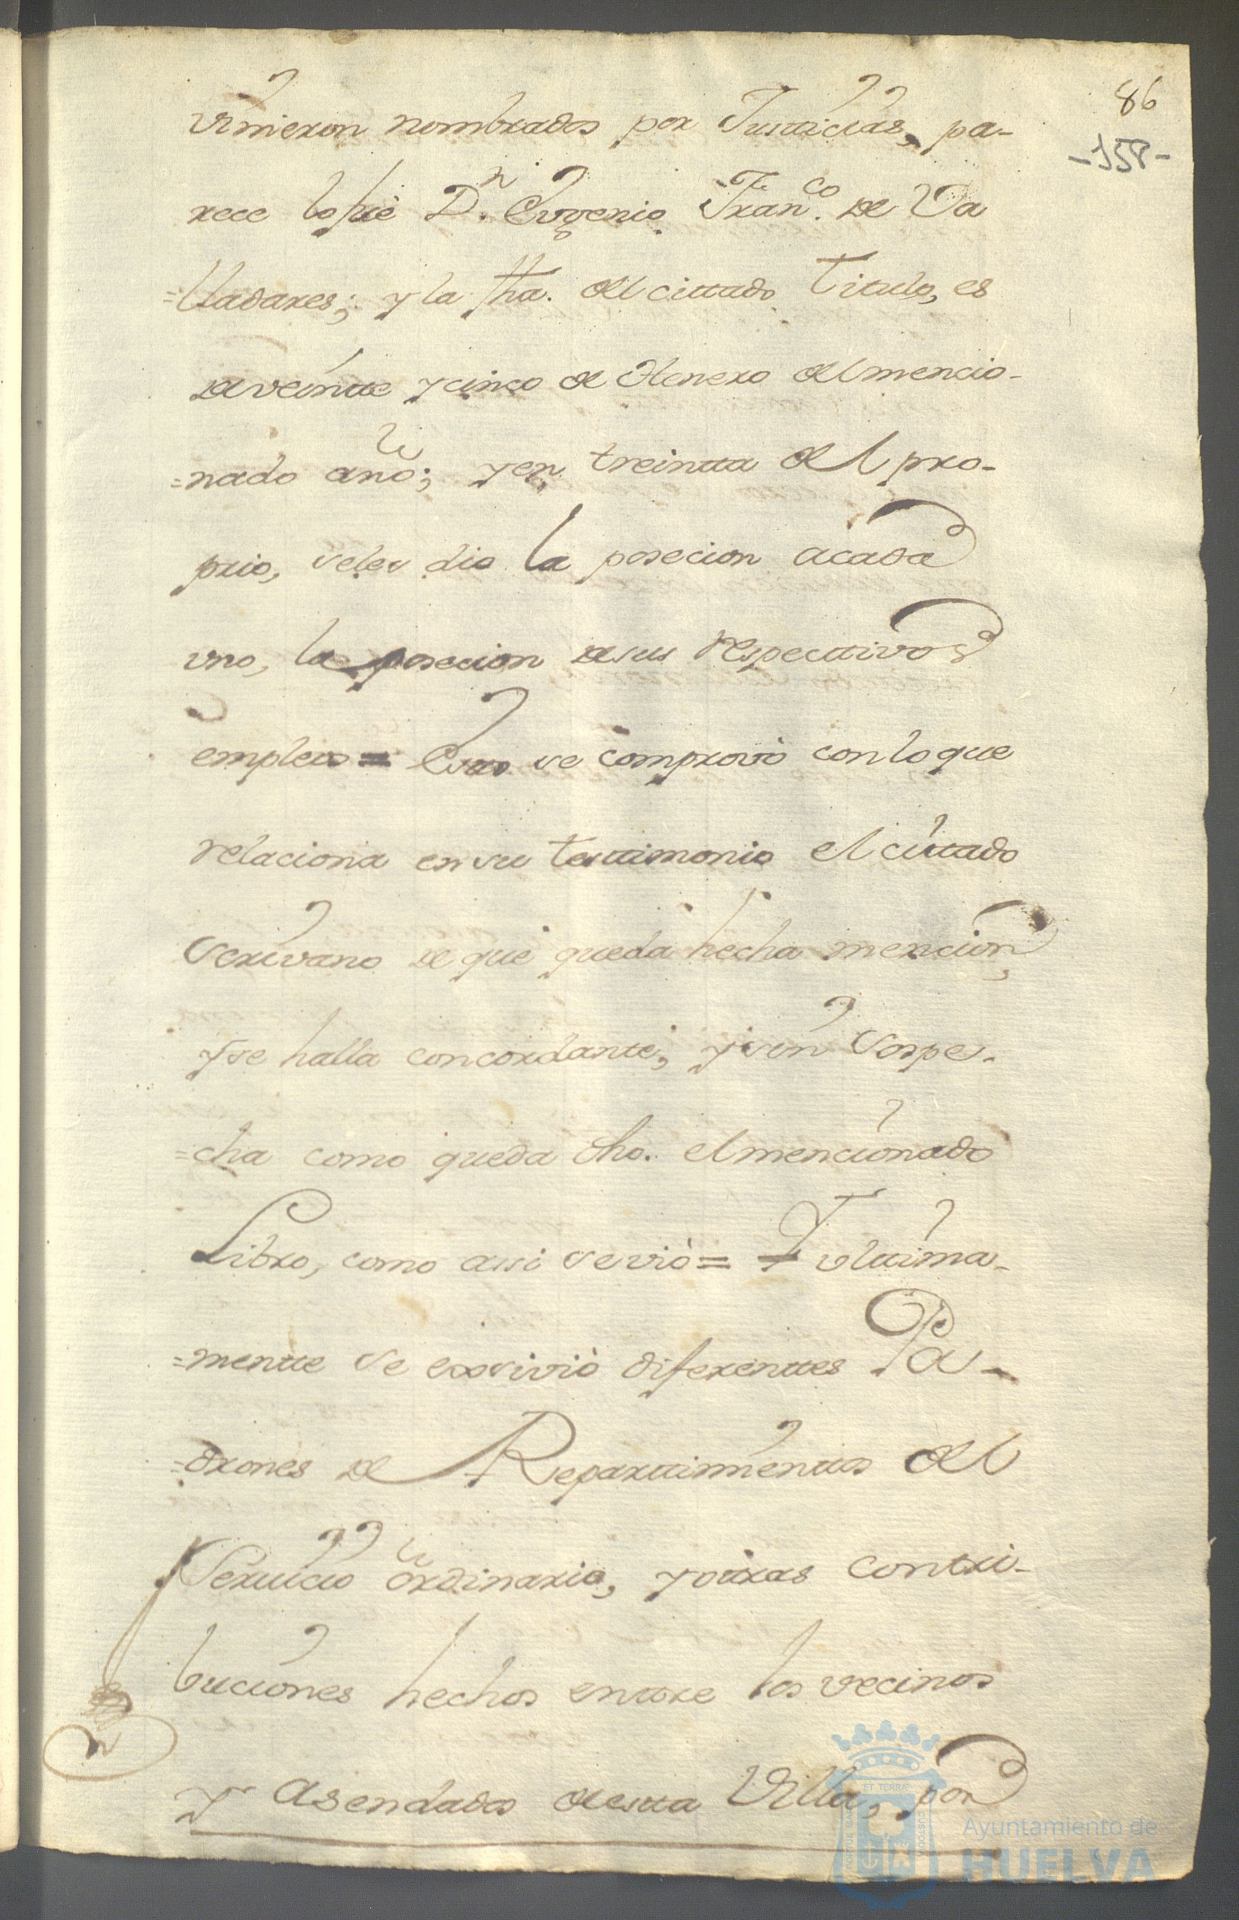 86
-158-
vinieron nombrados por Justicias, pa-
rece lo fue Dn. Eugenio Franco. de Va
=lladares; y la fha. del cittado Titulo, es
de veintte y cinco de Henero del mencio-
=nado año; y en treintta del pro-
prio, seles dio la posecion acada
uno, la posecion desus respecttivos
empleos = Esto se comprovó con lo que
relaciona en su testtimonio el cittado
Scrivano de que queda hecha mencion,
y se halla concordante, y sin Sospe-
=cha como queda dho. el mencionado
Libro, como assi se vió = Y ultima-
=mentte se exsivió diferenttes Pa-
=drones de Reparttimienttos del
Servicio ordinario, y otras contri-
buciones hechos enttre los vecinos
y asendados de estta Villa, por
Ayuntamiento de
HUELVA